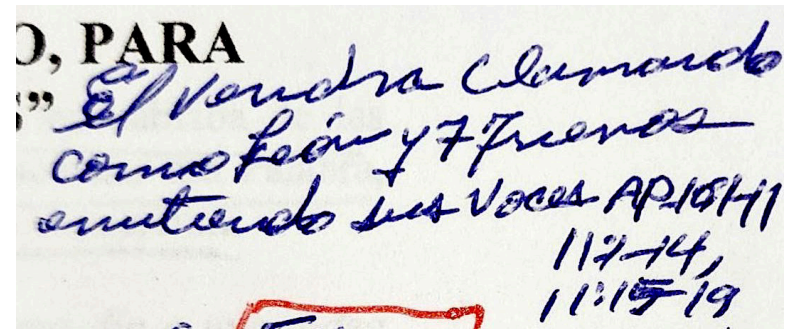 O, PARA
S”
El vendra clamando
como León y 7 Truenos
emitiendo sus Voces AP.10:1-11
11:15-19